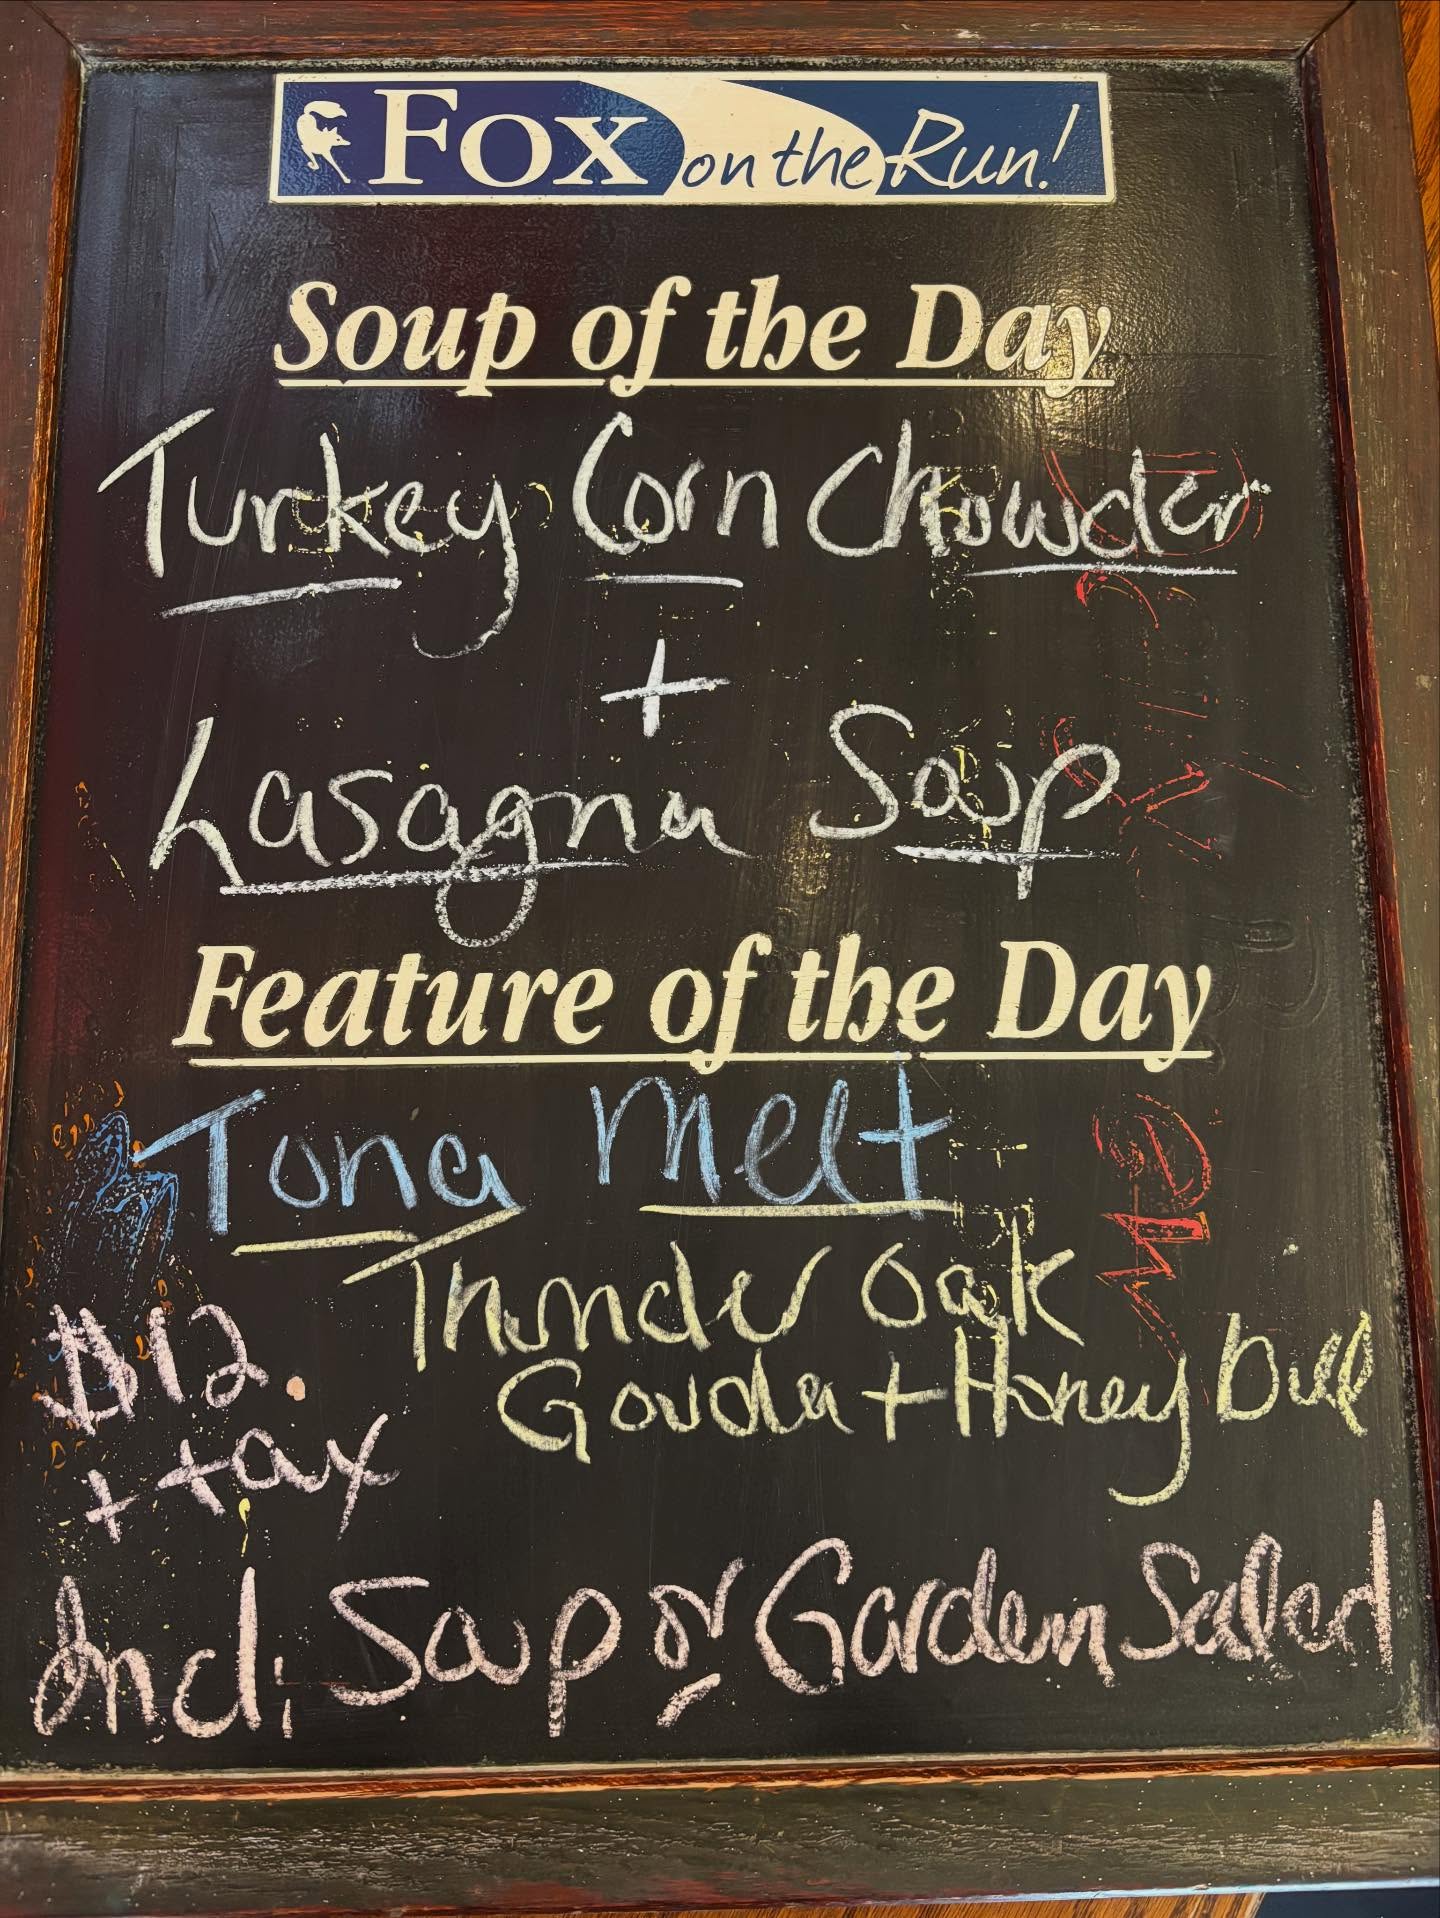 Fox on the Run!
Soup of the Day
Turkey Corn Chowder
+
Lasagna Soup
Feature of the Day
Tuna Melt
Thunder Oak
Gouda + Honey Dill
$12.
+ tax
Incl. Soup or Garden Salad